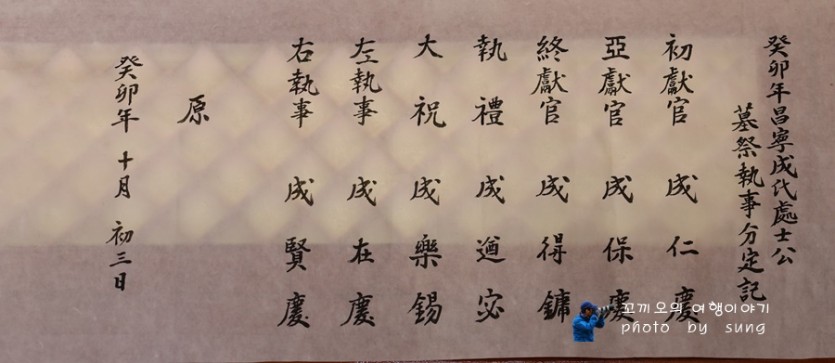 癸卯年昌寧成氏處士公
墓祭執事分定記
初獻官 成仁慶
亞獻官 成保慶
終獻官 成得鏞
執禮 成遒宓
大祝 成樂錫
左執事 成在慶
右執事 成賢慶
原
癸卯年 十月 初三日
꼬끼오의 여행이야기
photo by sung